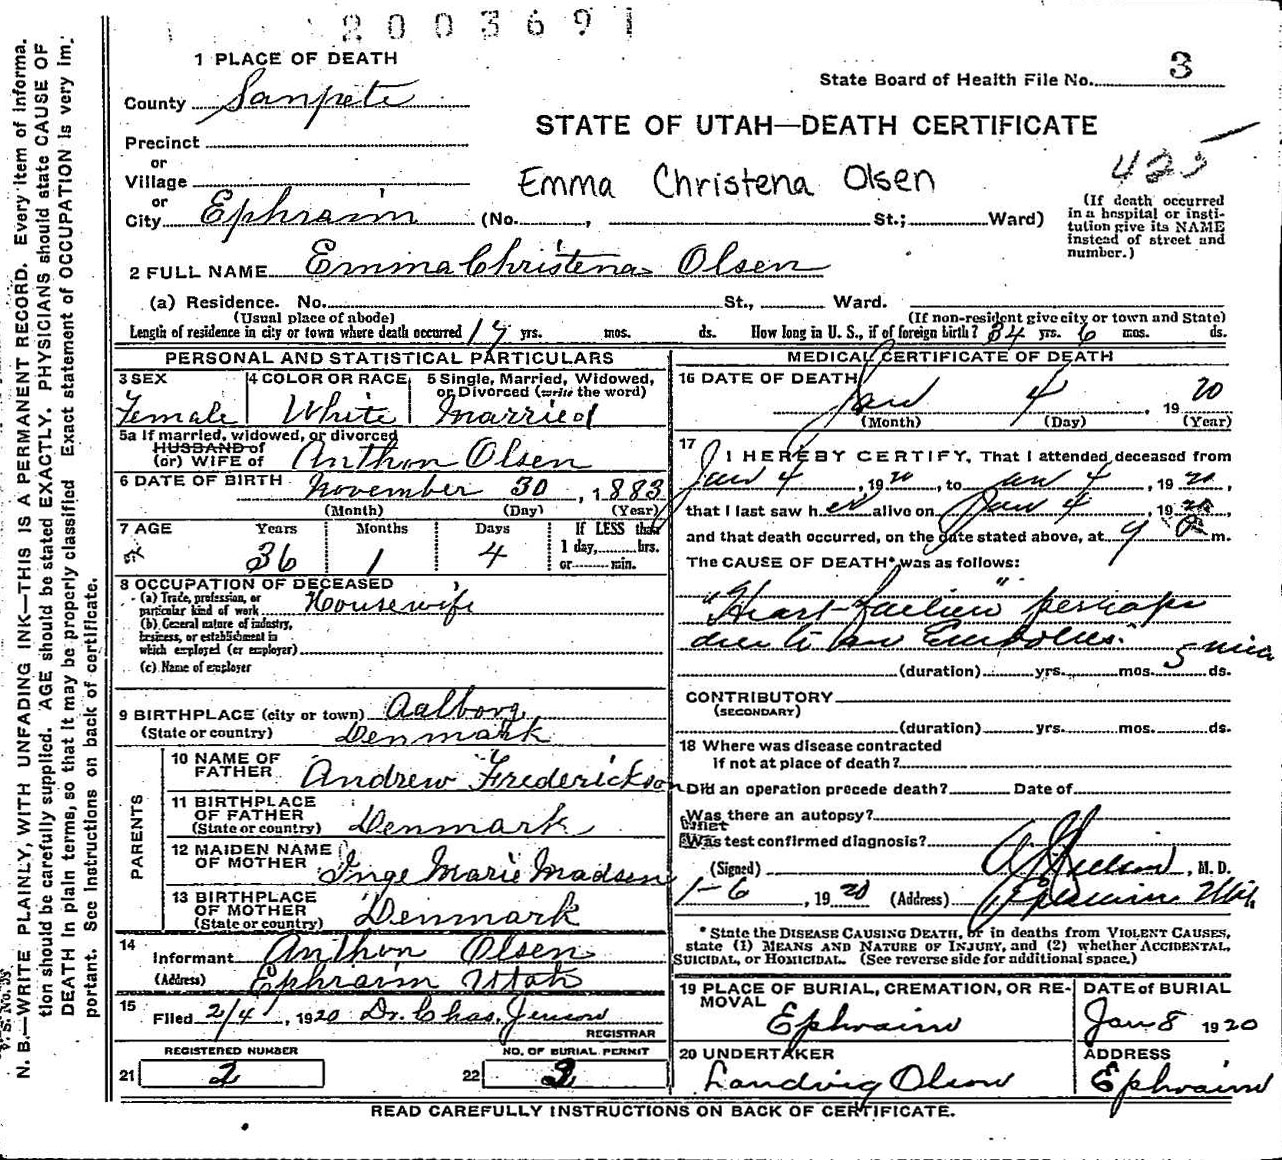 2003691
1 PLACE OF DEATH
State Board of Health File No. 3
County Sanpete
STATE OF UTAH—DEATH CERTIFICATE
Precinct
or
Village
425
Emma Christena Olsen
or
City Ephraim (No. , St.; Ward)
(If death occurred
in a hospital or insti-
tution give its NAME
instead of street and
number.)
2 FULL NAME Emma Christena Olsen
(a) Residence. No. St., Ward.
(Usual place of abode)
(If non-resident give city or town and State)
Length of residence in city or town where death occurred 17 yrs. mos. ds. How long in U. S., if of foreign birth? 34 yrs. 6 mos. ds.
PERSONAL AND STATISTICAL PARTICULARS
3 SEX
Female
4 COLOR OR RACE
White
5 Single, Married, Widowed,
or Divorced (write the word)
Married
5a If married, widowed, or divorced
HUSBAND of
(or) WIFE of Anthon Olsen
6 DATE OF BIRTH November 30, 1883
(Month) (Day) (Year)
7 AGE Years Months Days If LESS than
36 1 4 1 day, hrs.
or min.
8 OCCUPATION OF DECEASED
(a) Trade, profession, or
particular kind of work Housewife
(b) General nature of industry,
business, or establishment in
which employed (or employer)
(c) Name of employer
9 BIRTHPLACE (city or town) Aalborg
(State or country) Denmark
PARENTS
10 NAME OF
FATHER Andrew Frederickson
11 BIRTHPLACE
OF FATHER
(State or country) Denmark
12 MAIDEN NAME
OF MOTHER Inge Marie Madsen
13 BIRTHPLACE
OF MOTHER
(State or country) Denmark
14
Informant Anthon Olsen
(Address) Ephraim Utah
15
Filed 2/4, 1920 Dr. Chas. Jenson
REGISTRAR
REGISTERED NUMBER
21 2
NO. OF BURIAL PERMIT
22 2
MEDICAL CERTIFICATE OF DEATH
16 DATE OF DEATH
Jan 4, 1920
(Month) (Day) (Year)
17
I HEREBY CERTIFY, That I attended deceased from
Jan 4, 1920, to Jan 4, 1920,
that I last saw her alive on Jan 4, 1920,
and that death occurred, on the date stated above, at 9 m.
The CAUSE OF DEATH* was as follows:
"Heart failure" perhaps
due to an Embolus.
5 min
(duration) yrs. mos. ds.
CONTRIBUTORY
(SECONDARY)
(duration) yrs. mos. ds.
18 Where was disease contracted
if not at place of death?
Did an operation precede death? Date of
Was there an autopsy?
What test confirmed diagnosis?
(Signed) , M. D.
1-6, 1920 (Address) Ephraim Utah
* State the DISEASE CAUSING DEATH, or in deaths from VIOLENT CAUSES,
state (1) MEANS AND NATURE OF INJURY, and (2) whether ACCIDENTAL,
SUICIDAL, or HOMICIDAL. (See reverse side for additional space.)
19 PLACE OF BURIAL, CREMATION, OR RE-
MOVAL
Ephraim
DATE of BURIAL
Jan 8 1920
20 UNDERTAKER
Olson
ADDRESS
Ephraim
READ CAREFULLY INSTRUCTIONS ON BACK OF CERTIFICATE.
N. B.—WRITE PLAINLY, WITH UNFADING INK—THIS IS A PERMANENT RECORD. Every item of informa-
tion should be carefully supplied. AGE should be stated EXACTLY. PHYSICIANS should state CAUSE OF
DEATH in plain terms, so that it may be properly classified. Exact statement of OCCUPATION is very im-
portant. See instructions on back of certificate.